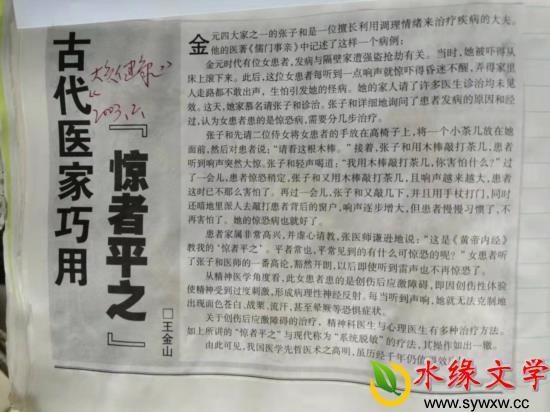 古代医家巧用
『惊者平之』
□王金山
大众健康
2003.2.
金元四大家之一的张子和是一位擅长利用调理情绪来治疗疾病的大夫。
他的医著《儒门事亲》中记述了这样一个病例:
金元时代有位女患者,发病与隔壁家遭强盗抢劫有关。当时,她被吓得从
床上滚下来。此后,这位女患者每听到一点响声就惊吓得昏迷不醒,弄得家里
人走路都不敢出声,生怕引发她的怪病。她的家人请了许多医生诊治均未见
效。这天,她家慕名请张子和诊治。张子和详细地询问了患者发病的原因和经
过,认为女患者患的是惊恐病,需要分几步治疗。
张子和先请二位侍女将女患者的手放在高椅子上,将一个小茶几放在她
面前,然后对患者说:“请看这根木棒。”接着,张子和用木棒敲打茶几,患者
听到响声突然大惊。张子和轻声喝道:“我用木棒敲打茶几,你害怕什么?”过
了一会儿,患者惊恐稍定,张子和又用木棒敲打茶几,且响声越来越大,患者
这时已不那么害怕了。再过一会儿,张子和又敲几下,并且用手杖打门,同时
还暗地里派人去敲打患者背后的窗户,响声逐步增大,但患者慢慢习惯了,不
再害怕了。她的惊恐病也就好了。
患者家属非常高兴,并虚心请教,张医师谦逊地说:“这是《黄帝内经》
教我的‘惊者平之’。平者常也,平常见到的有什么可惊恐的呢?”女患者听
了张子和医师的一番高论,豁然开朗,以后即使听到雷声也不再惊恐了。
从精神医学角度看,此女患者患的是创伤后应激障碍,即因创伤性体验
使精神受到过度刺激,形成病理性神经反射。每当听到声响,她就无法克制地
出现面色苍白、战栗、流汗,甚至晕厥等恐惧症状。
关于创伤后应激障碍的治疗,精神科医生与心理医生有多种治疗方法。
如上所讲的“惊者平之”与现代称为“系统脱敏”的疗法,其操作如出一辙。
由此可见,我国医学先哲医术之高明,虽历经千年仍值得效
水缘文学
www.sywxw.cc